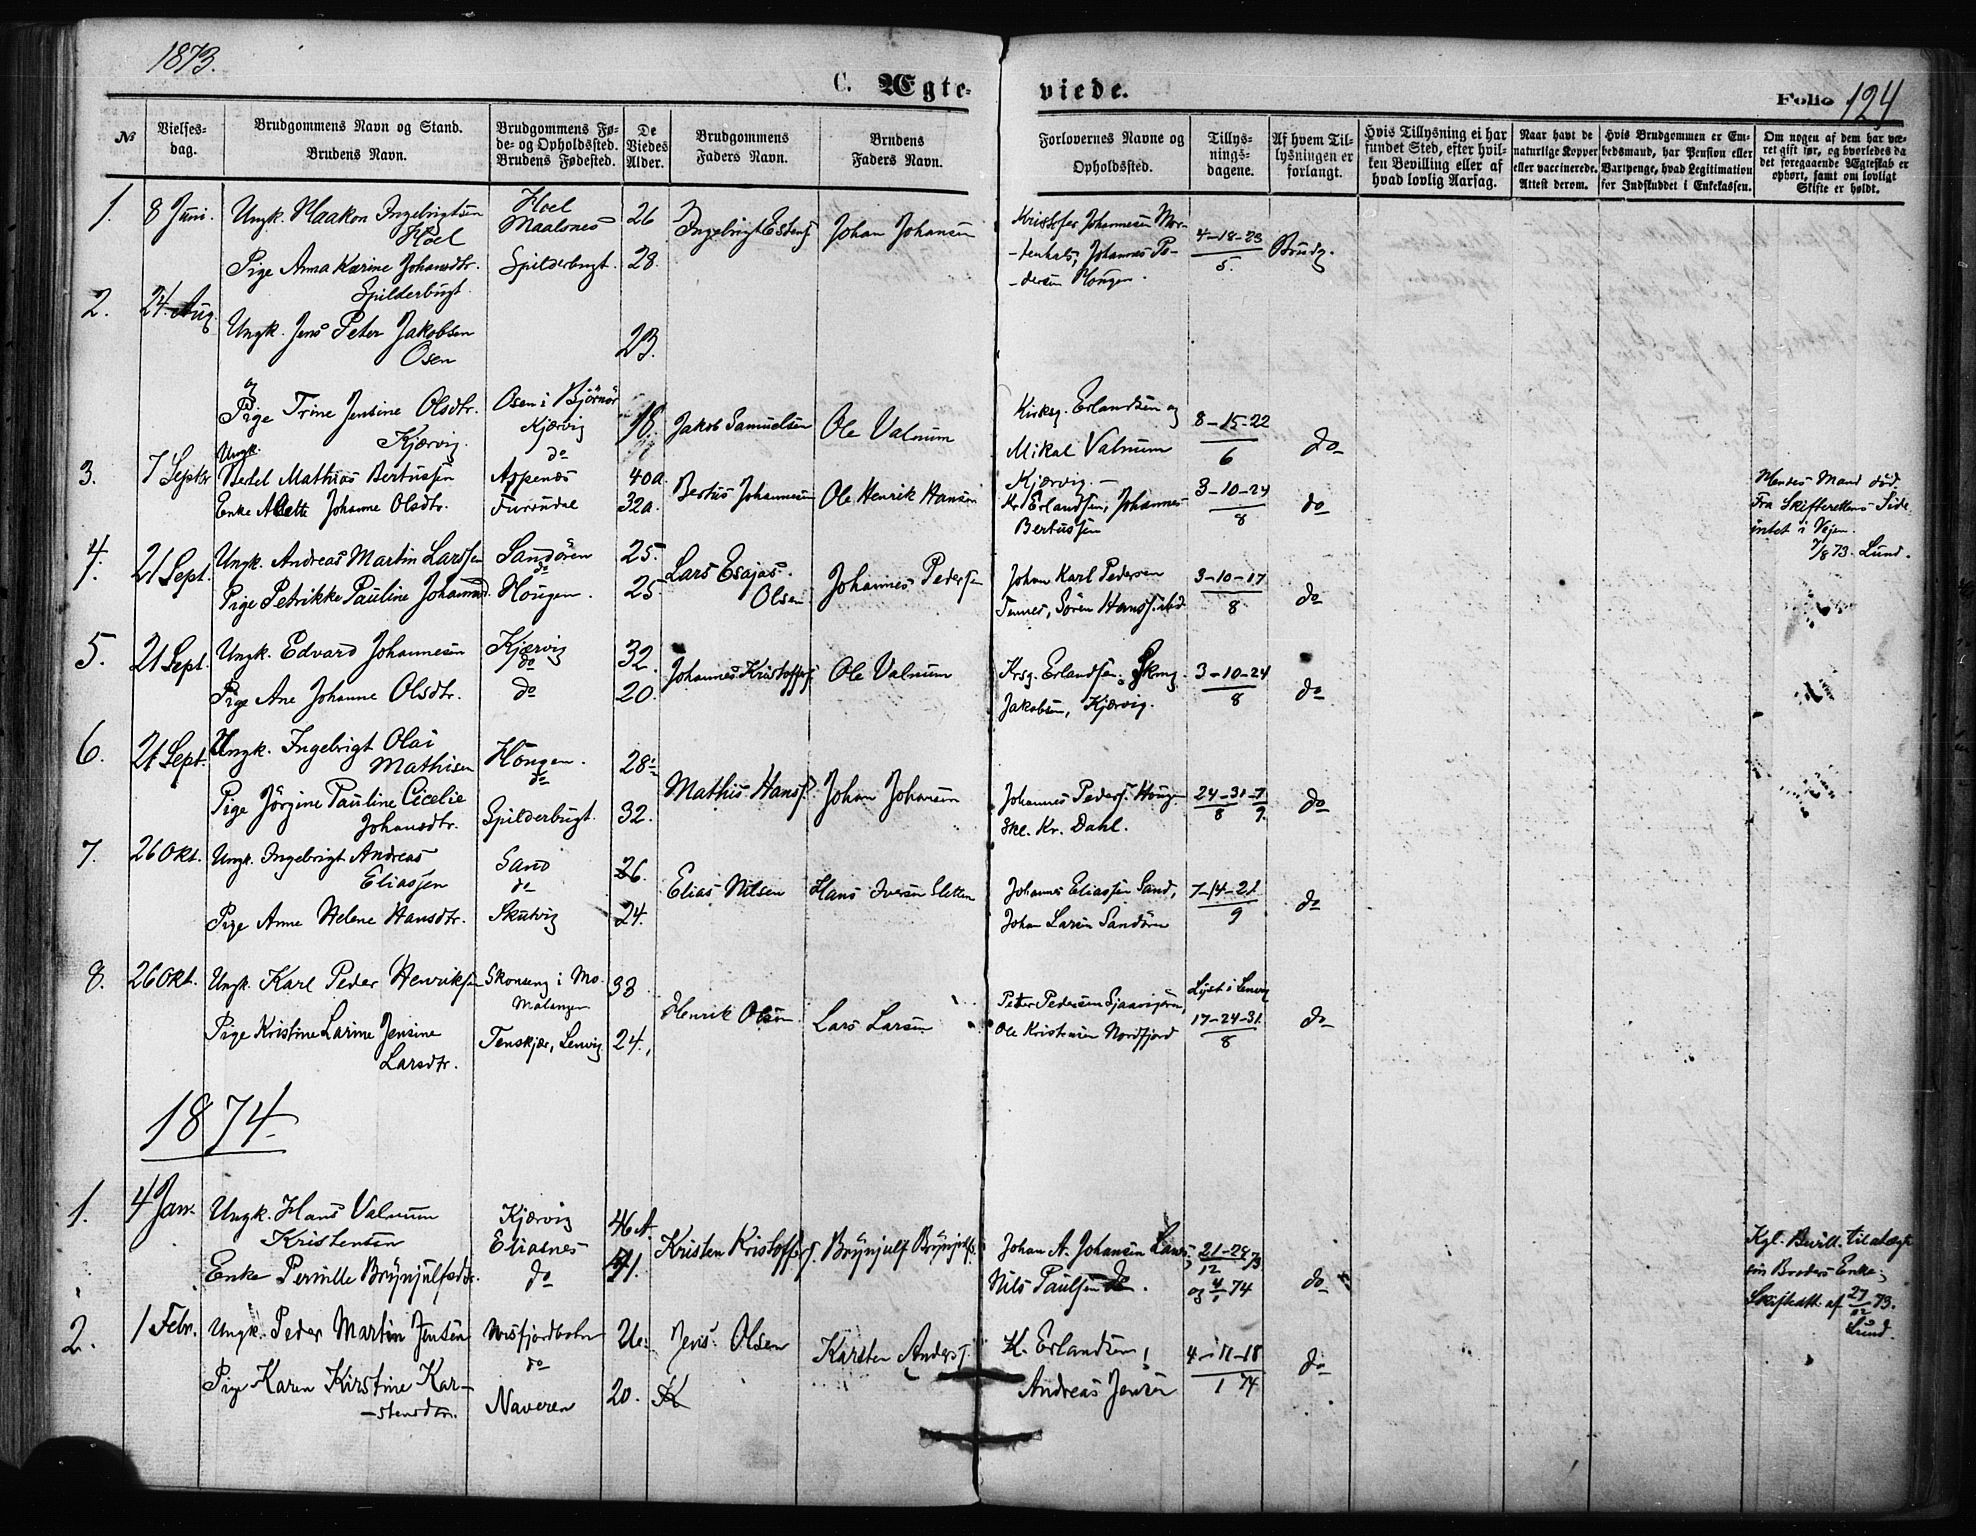 1873.
C. Ægte-
viede.
Folio 124
№
Vielses-
dag.
Brudgommens Navn og Stand.
Brudens Navn.
Brudgommens Fø-
de- og Opholdssted.
Brudens Fødested.
De
Viedes
Alder.
Brudgommens
Faders Navn.
Brudens
Faders Navn.
Forlovernes Navne og
Opholdssted.
Tillys-
nings-
dagene.
Af hvem Til-
lysningen er
forlangt.
Hvis Tillysning ei har
fundet Sted, efter hvil-
ken Bevilling eller af
hvad lovlig Aarsag.
Naar havt de
naturlige Kopper
eller vaccinerede.
Attest derom.
Hvis Brudgommen er Em-
bedsmand, har Pension eller
Vartpenge, hvad Legitimation
for Indskuddet i Enkekassen.
Om nogen af dem har væ-
ret gift før, og hvorledes da
det foregaaende Ægteskab er
ophørt, samt om lovligt
Skifte er holdt.
1. 8 Juni. Ungk. Haakon Ingebrigtsen
Hoel
Hoel
Maalsnes
26
Ingebrigt Estens.
Johan Johansen
Kristofer Johannesen Mor-
tenhals, Johannes Pe-
dersen Hougen.
4-18-23
5.
Brudg.
Pige Anna Karine Johansdtr.
Spilderbugt.
Spilderbugt.
28.
2. 24. Aug.
Ungk. Jens Peter Jakobsen
Osen
23.
og
Pige Trine Jensine Olsdtr.
Kjærvig.
Osen i Bjørnør
Kjærvig
do
18.
Jakob Samuelsen
Ole Valnum
Kirksg. Erlandsen og
Mikal Valnum
Kjærvig.
8-15-22
6
do
3. 7 Septbr
Ungk.
Bertel Mathias Bertussen
Enke Alette Johanne Olsdtr.
Aspenes
Furudal
40a
32a.
Bertus Johannesen
Ole Henrik Hansen
Kr Erlandsen, Johannes
Bertussen
3-10-24
8
do
Hendes Mand död.
Fra Skifterettens Side
intet i Vejen.
7/8 73. Lund.
4. 21 Sept.
Ungk. Andreas Martin Larssen
Pige Petrikke Pauline Johannesd.
Sandören
do
Hougen.
25.
25
Lars Esajas.
Olsen
Johannes Pedersen
Johan Karl Pedersen
Tennes, Sören Hanss. ibid
3-10-17
8
do
5. 21 Sept.
Ungk. Edvard Johannesen
Pige Ane Johanne Olsdtr.
Kjærvig
do
do
32.
20.
Johannes Kristoffers.
Ole Valnum
Krsg. Erlandsen.
Jakobsen, Kjærvig.
3-10-24
8
do
6. 21 Sept.
Ungk. Ingebrigt Olai
Mathisen
Pige Jörgine Pauline Cicelie
Johansdtr.
Hougen.
do
Spilderbugt.
28
32.
Mathis Hans.
Johan Johansen
Johannes Peders. Hougen
Skl. Kr. Dahl.
24-31-7
8 9.
do
7. 26 Okt.
Ungk. Ingebrigt Andreas
Eliassen
Pige Anne Helene Hansdtr.
Sand
do
Skutvig
26.
24.
Elias Nilsen
Hans Iversen Sletten
Johannes Eliassen Sand,
Johan Larsen Sandören
7-14-21
9
do
8. 26 Okt.
Ungk. Karl Peder Henriksen
Pige Kristine Larine Jensine
Larsdtr.
i Mo.
Malangen
Tenskjær, Lenvig
33
24.
Henrik Olsen
Lars Larsen
Peter Pedersen
Ole Kristensen Nordfjord
Lyst i Lenvig
17-24-31
8
do
1874.
1. 4 Jan.
Ungk. Hans Valnum
Kristensen
Enke Pernille Brynjulfsdtr.
Kjærvig
Eliasnes
do
46 A.
41.
Kristen Kristoffers.
Brynjulf Brynjulfs.
Johan A. Johansen
Nils Paulsen do.
21-28/73
12
og 4/1 74
do
Kgl. Bevill. til at ægte
sin Broders Enke;
Skifteatt. af 27/12 73.
Lund.
2. 1 Febr.
Ungk. Peder Martin Jensen
Pige Karen Kirstine Kar-
stensdtr.
do
Naveren
20.
Jens Olsen
Karsten Anders.
K. Erlandsen,
Andreas Jensen
4-11-18
1 74
do